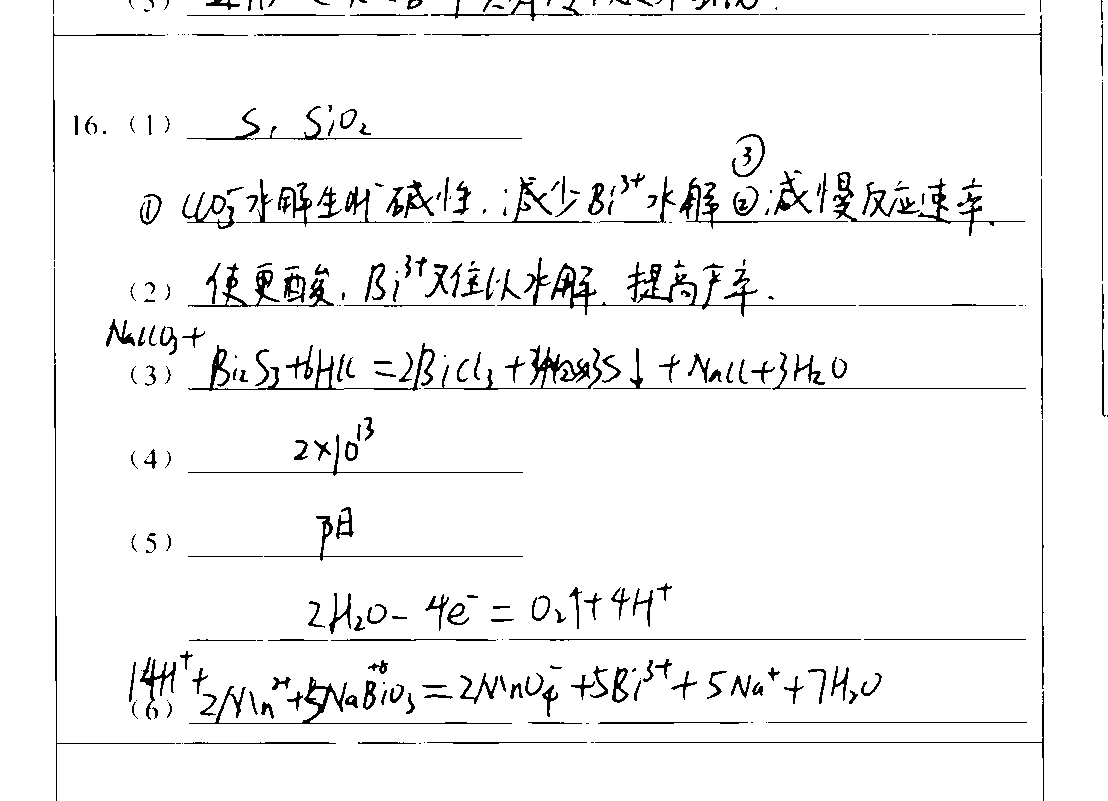 16.（1） S, SiO₂
③
① CO₃²⁻水解生成碱性，减少Bi³⁺水解 ② 减慢反应速率.
（2） 使更酸，Bi³⁺难以水解，提高产率.
NaClO₃+
（3） Bi₂S₃+6HCl=2BiCl₃+3S↓+NaCl+3H₂O
（4） 2×10¹³
（5） 阳
2H₂O-4e⁻=O₂↑+4H⁺
14H⁺+
（6） 2Mn²⁺+5NaBiO₃=2MnO₄⁻+5Bi³⁺+5Na⁺+7H₂O